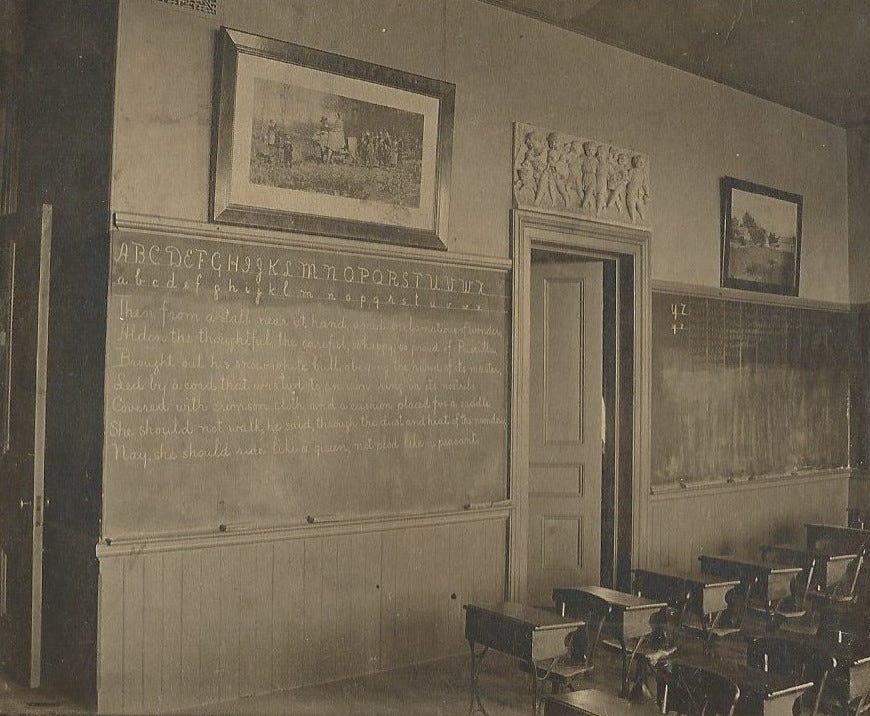 A B C D E F G H I J K L M N O P Q R S T U V W X
a b c d e f g h i j k l m n o p q r s t u v w x
Then from a stall near at hand, amid exclamations of wonder,
Alden the thoughtful, the careful, so happy, so proud of Priscilla,
Brought out his snow-white bull, obeying the hand of its master,
Led by a cord that was tied to an iron ring in its nostrils
Covered with crimson cloth, and a cushion placed for a saddle.
She should not walk, he said, through the dust and heat of the noonday,
Nay, she should ride like a queen, not plod like a peasant.
Y Z
y z